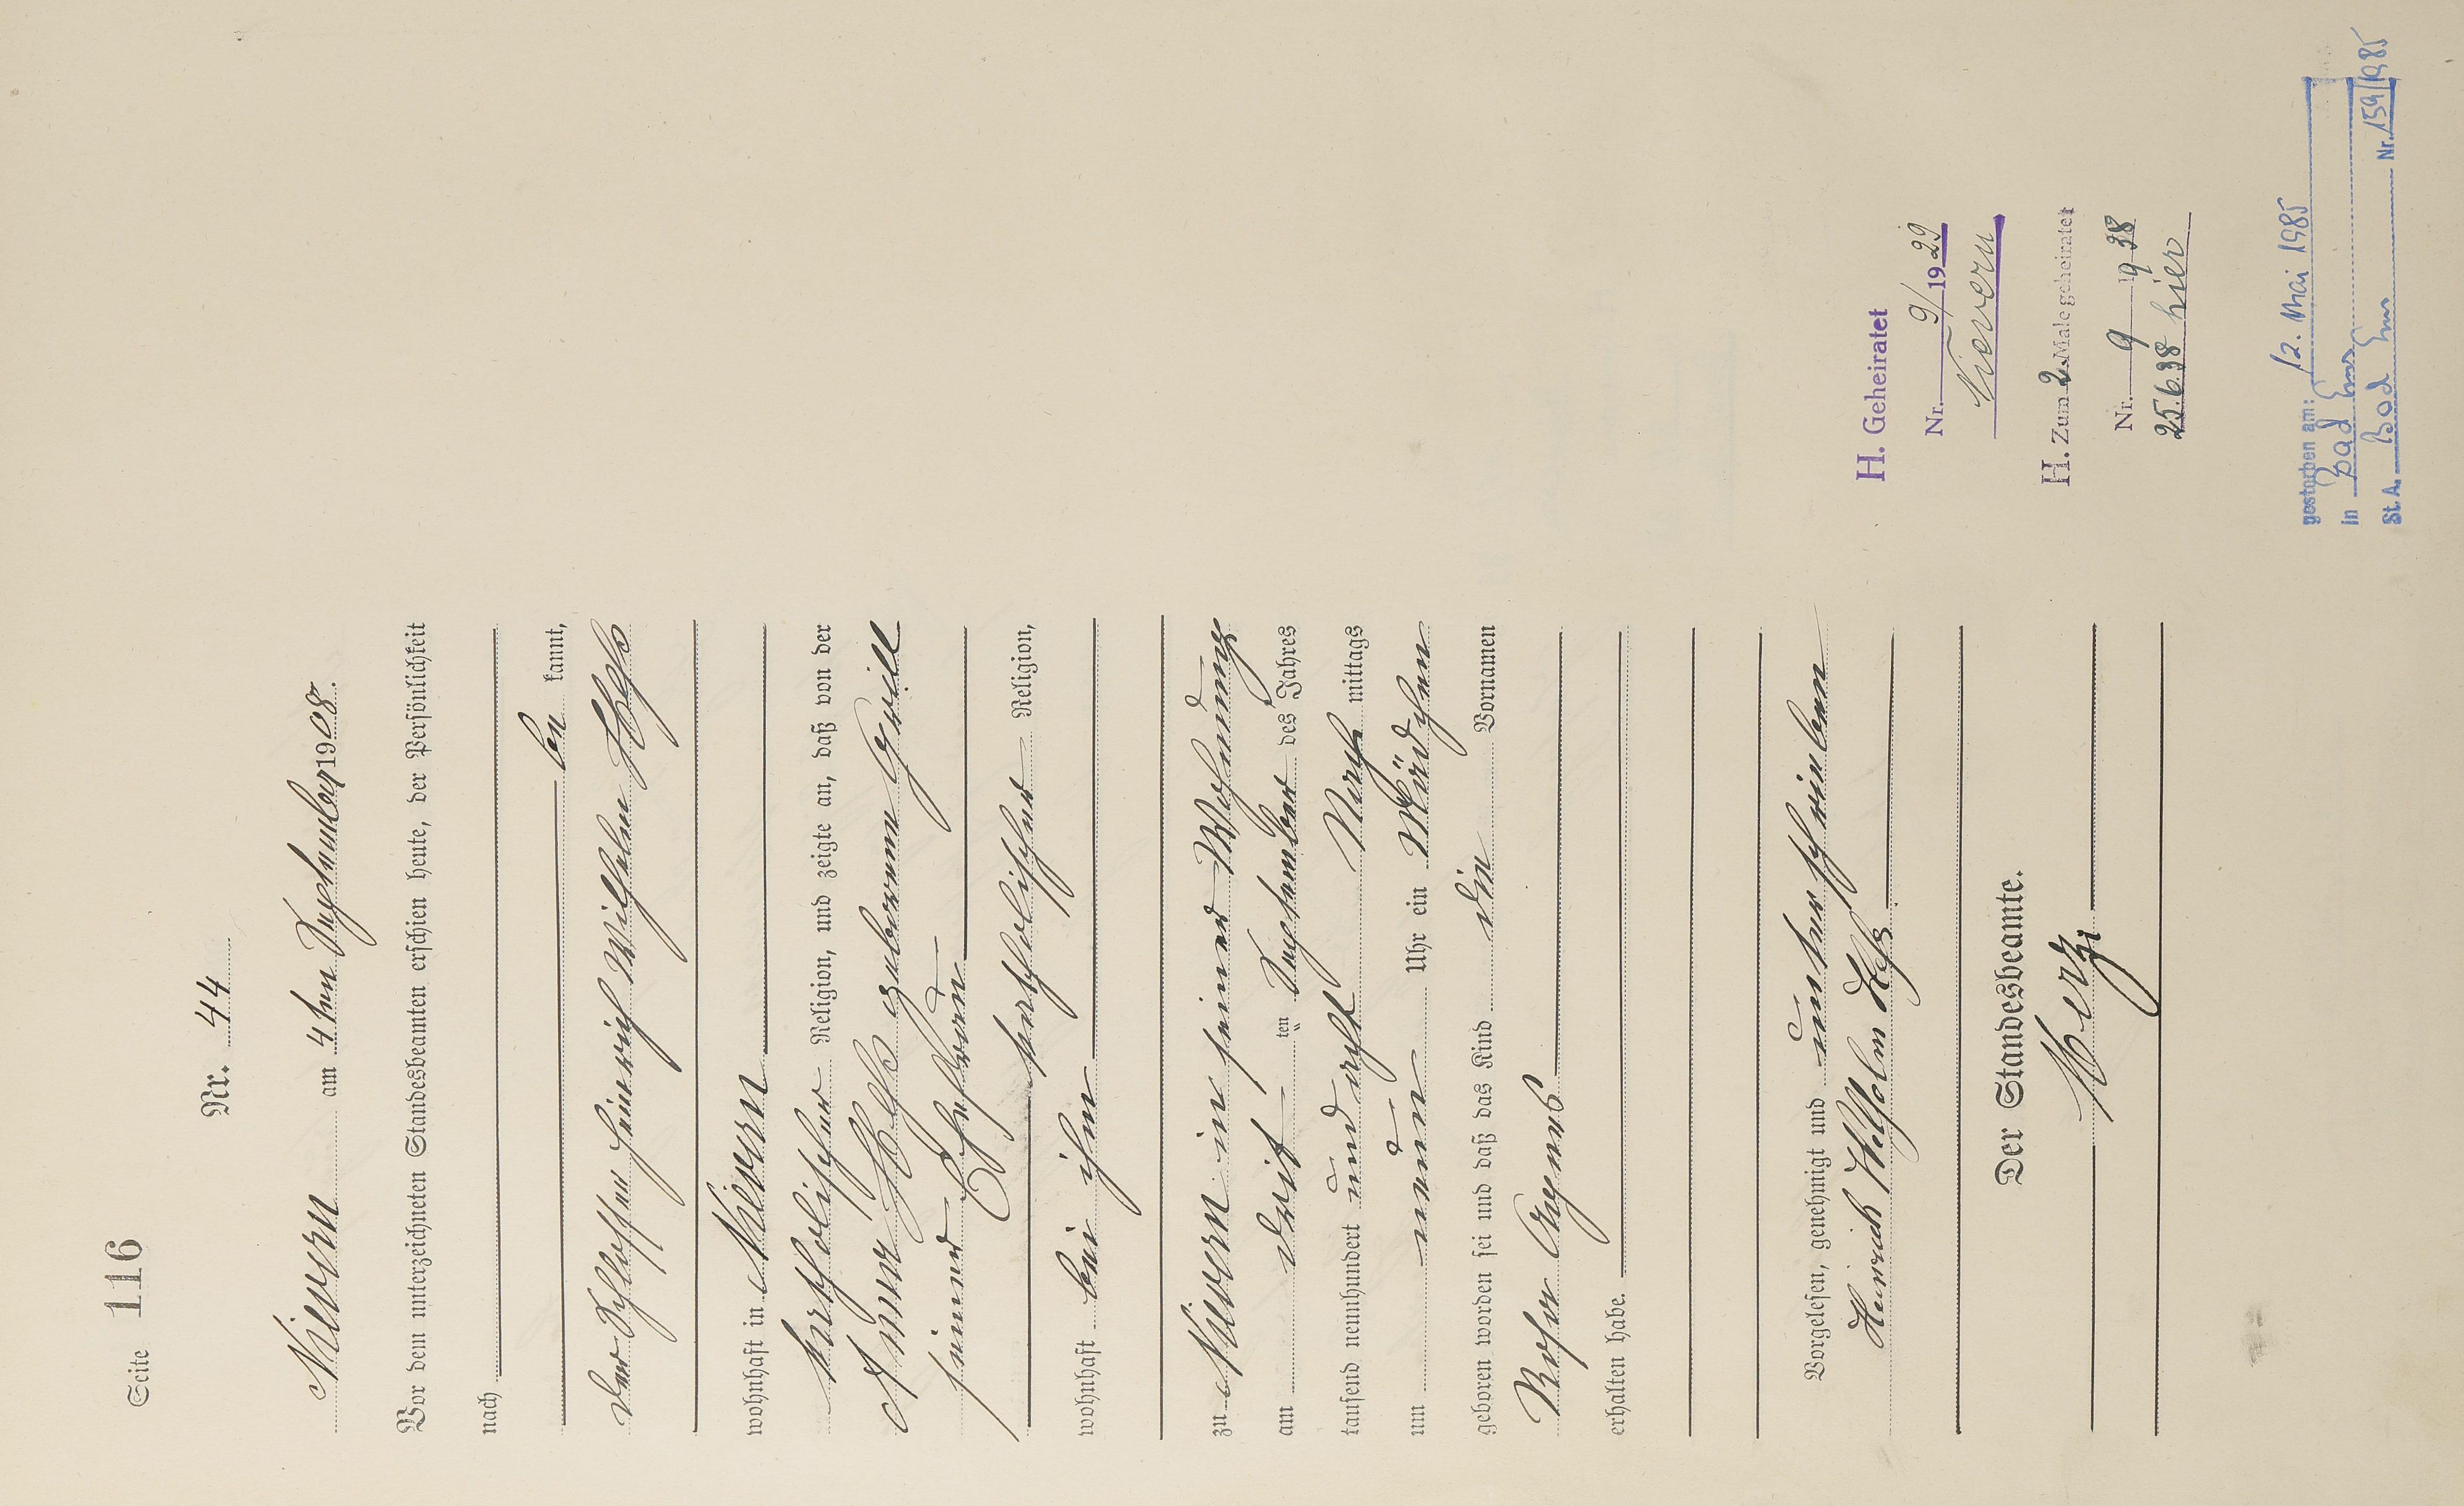 Seite 116
Nr. 44
Nievern am 4ten September 1908.
Vor dem unterzeichneten Standesbeamten erschien heute, der Persönlichkeit
nach
be kannt,
der Schlosser Heinrich Wilhelm Heß
wohnhaft in Nievern
katholischer Religion, und zeigte an, daß von der
Anna Heß geborene Grill
seiner Ehefrau
katholischer Religion,
wohnhaft bei ihm
zu Nievern in seiner Wohnung
am drit ten September des Jahres
tausend neunhundert und acht Nach mittags
um neun Uhr ein Mädchen
geboren worden sei und daß das Kind die Vornamen
Rosa Agnes
erhalten habe.
Vorgelesen, genehmigt und unterschrieben
Heinrich Wilhelm Heß
Der Standesbeamte.
Herz
H. Geheiratet
Nr. 9/1929
Nievern
H. Zum 2. Male geheiratet
Nr. 9 1938
25.6.38 hier
gestorben am: 12. Mai 1985
in Bad Ems
St. A. Bad Ems Nr. 159/1985